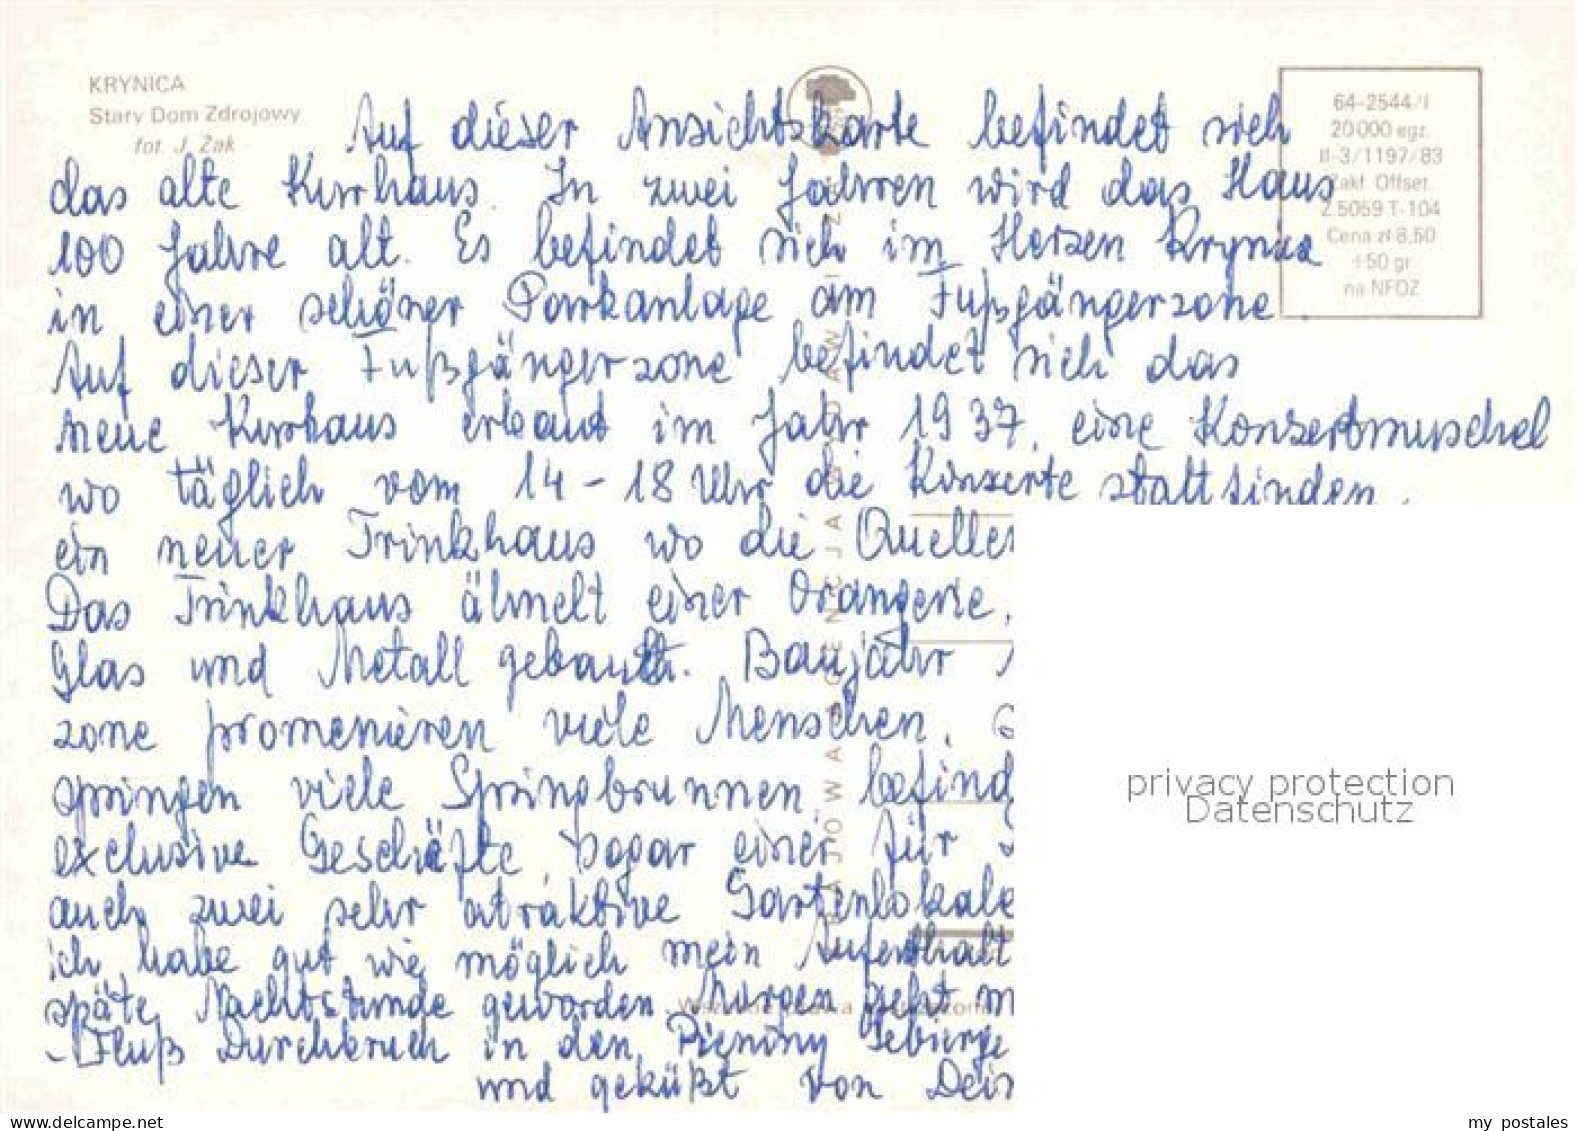 KRYNICA
Stary Dom Zdrojowy
fot. J. Żak
64-2544/I
20000 egz.
II-3/1197/83
Zakł. Offset.
Z.5059 T-104
Cena zł 8,50
+50 gr
na NFOZ
Auf dieser Ansichtskarte befindet sich
das alte Kurhaus. In zwei Jahren wird das Haus
100 Jahre alt. Es befindet sich im Herzen
in einer schöner Parkanlage am Fußgängerzone.
Auf dieser Fußgängerzone befindet sich das
neue Kurhaus erbaut im Jahr 1937, eine Konzertmuschel
wo täglich vom 14-18 Uhr die Konzerte stattfinden.
ein neuer Trinkhaus wo die Quellen
Das Trinkhaus ähnelt einer Orangerie.
Glas und Metall gebaut. Baujahr
zone promenieren viele Menschen.
springen viele Springbrunnen befind
exclusive Geschäfte sogar einer für
auch zwei sehr atraktive Gartenlokale
ich habe gut wie möglich mein Aufenthalt
späte Nachtstunde geworden. Morgen geht
-Fluß Durchbruch in den Pieniny Gebierge
und geküßt von Dein
KRAJOWA AGENCJA WYDAWNICZA
privacy protection
Datenschutz
www.delcampe.net
my_postales